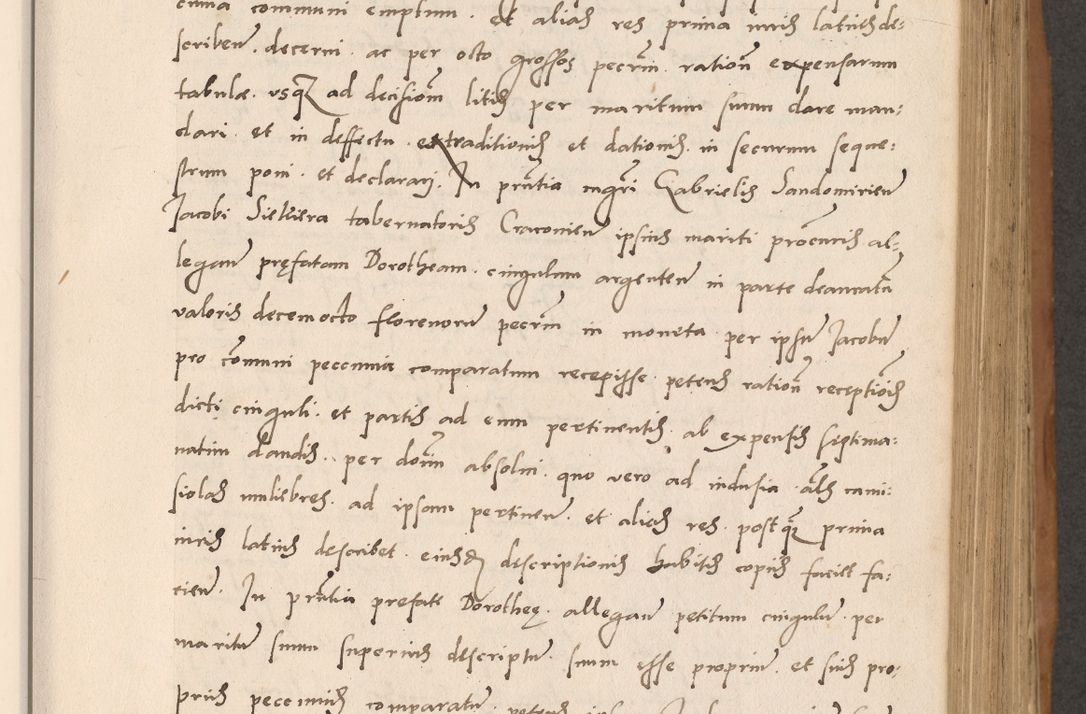 communi emptum. et alias res prima iuris latius de-
scriben. decerni. ac per octo grossos pecun. ration expensarum
tabulae. usq ad decisiom litis per maritum suum dare man-
dari. et in deffectu extraditionis et dationis. in securum seque-
strum poni. et declarari. In pntia mgri Gabrielis Sandomirien
Jacobi tabernatoris Cracovien ipsius mariti procuris al-
legan pręfatam Dorotheam. cingulum argenteu in parte deauratu
valoris decemocto florenoru pecun in moneta per ipsu Jacobu
pro comuni pecunia comparatum recepisse. petens ration receptiois
dicti cinguli. et partis ad eum pertinentis. ab expensis septima-
natim dandis. per domn absolvi. quo vero ad indusia als cami-
siolas muliebres. ad ipsam pertinen. et alias res. postq prima
iuris latius describet. eiusq descriptionis habitis copiis facile fa-
tien. In pntia prefate Dorotheę. allegan petitum cingulu. per
maritu suum superius descriptu. suum esse propriu. et suis pro-
priis pecuniis comparatu. petens